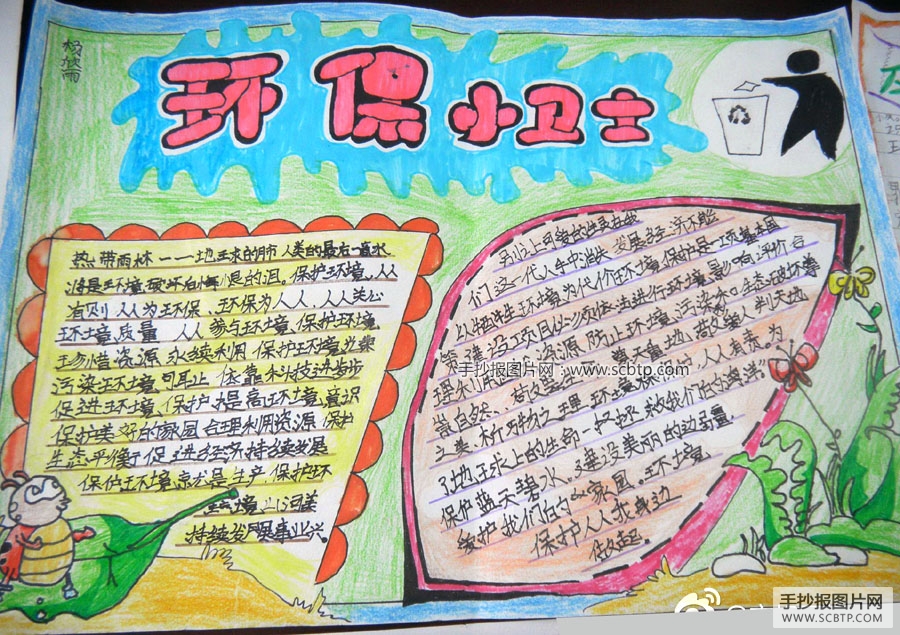 杨欣雨
环保小卫士
热带雨林——地球的肺 人类的最后一滴水
将是环境破坏后悔恨的泪。保护环境。人人
有则 人人为环保、环保为人人、人人关心
环境质量 人人参与环境 保护环境。
珍惜资源 永续利用 保护环境光荣
污染环境可耻 依靠科技进步
促进环境 保护 提高环境意识
保护美好的家园 合理利用资源 保护
生态平衡 促进经济持续发展
保护环境就是生产 保护环
持续发展事业兴。
别让可爱的生灵在我
们这一代人手中消失 发展经济不能
以牺牲环境为代价 环境保护是一项基本国
策 建设项目必须依法进行环境影响评价 合
理利用 资源 防止环境污染和生态破坏
判天地
之美 析万物之理 环境保 人人有责。为
了地球上的生命 拯救我们的海洋"
保护蓝天碧水。建设美丽的边疆。
爱护我们的家园。环境
保护从我身边
做起。
手抄报图片网：www.scbtp.com
手抄报图片网
WWW.SCBTP.COM